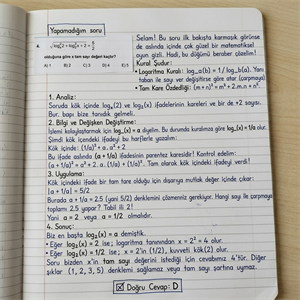 Yapamadığım soru
4.
√log²ₓ2 + log²₂x + 2 = 5/2
olduğuna göre x tam sayı değeri kaçtır?
A) 1 B) 2 C) 3 D) 4 E) 5
Selam! Bu soru ilk bakışta karmaşık görünse
de aslında içinde çok güzel bir matematiksel
oyun gizli. Hadi, bu düğümü beraber çözelim!
Kural Şudur:
• Logaritma Kuralı: log_a(b) = 1 / log_b(a). Yani
taban ile içeriği yer değiştirirse göre ata! (çarpmaya)
• Tam Kare Özdeşliği: (m+n)² = m² + 2.m.n + n².
1. Analiz:
Soruda kök içinde logₓ(2) ve log₂(x) ifadelerinin kareleri ve bir de +2 sayısı.
Bur. bapı bize tanıdık gelmeli.
2. Bilgi ve Değişken Değiştirme:
İşlemi kolaylaştırmak için log₂(x) = a diyelim. Bu durumda kuralımıza göre logₓ(x) = 1/a olur.
Şimdi kök içindeki ifadeyi bu harflerle yazalım:
Kök içinde: (1/a)² + a² + 2
Bu ifade aslında (a + 1/a) ifadesinin parantez karesidir! Kontrol edelim:
(a + 1/a)² = a² + 2.a.(1/a) + (1/a)². Tam olarak kök içindeki ifadeyi verdi!
3. Uygulama:
Kök içindeki ifade bir tam tare olduğu için dışarıya mutlak değer içinde çıkar:
|a + 1/a| = 5/2
Burada a + 1/a = 2.5 (yani 5/2) denklemini çözmemiz gerekiyor. Hangi sayı ile çarpmaya
toplamı 2.5 yapar? Tabii ki 2!
Yani a = 2 veya a = 1/2 olmalıdır.
4. Sonuç:
Biz en başta log₂(x) = a demiştik.
• Eğer log₂(x) = 2 ise; logaritma tanımından x = 2² = 4 olur.
• Eğer log₂(x) = 1/2 ise; x = 2'in (1/2), kuvveti kök(2) olur.
Soru bizden x'in tam sayı değerini istediği için cevabımız 4'tür. Diğer
şıklar (1, 2, 3, 5) denklemi sağlamaz veya tam sayı şartına uymaz.
Doğru Cevap: D